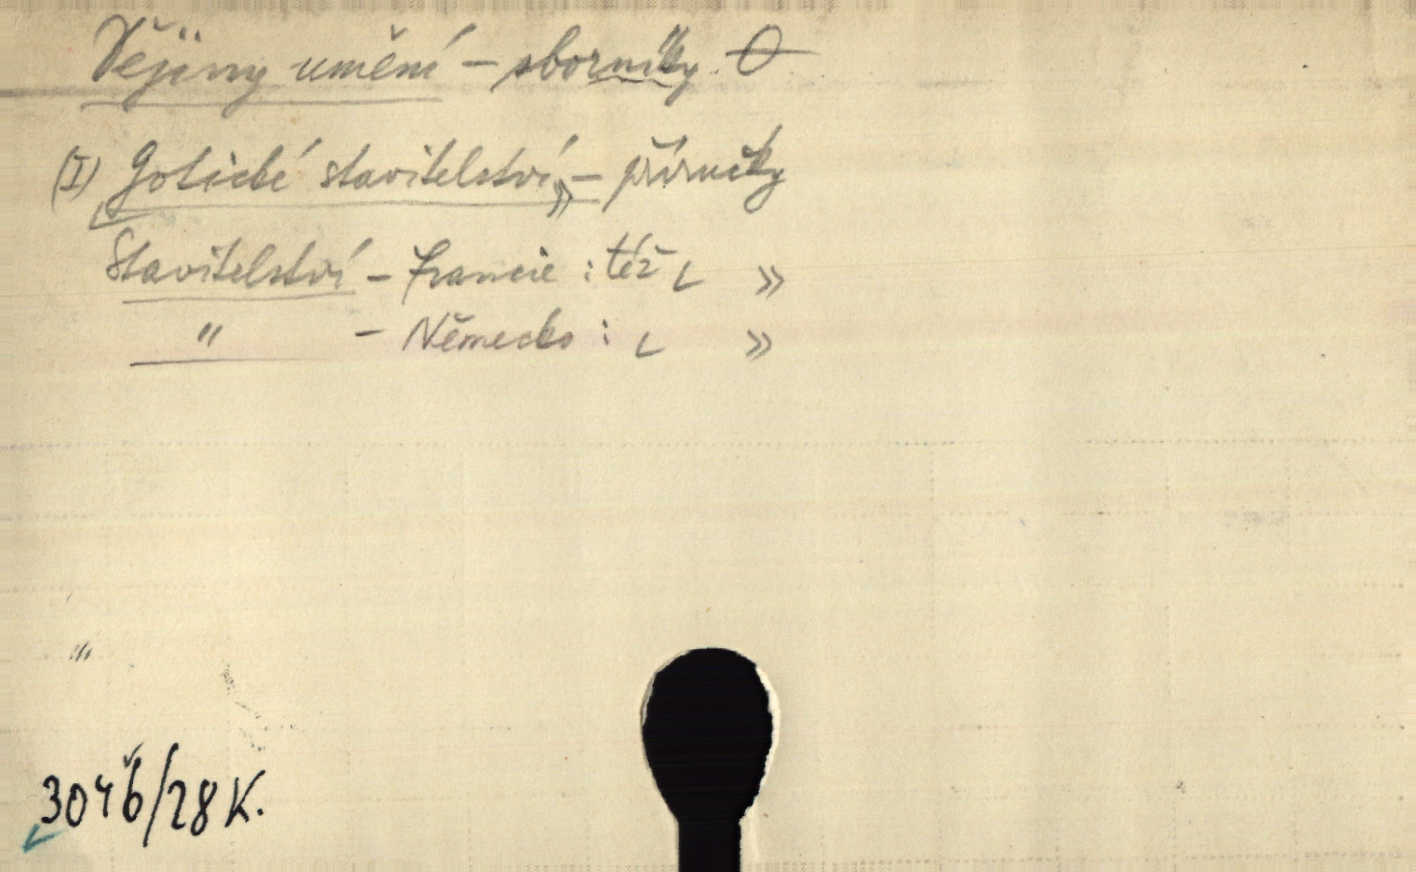 Dějiny umění - sborníky. O
(I) Gotické stavitelství - příručky
Stavitelství - Francie : též L »
" - Německo : L »
3046/28 K.